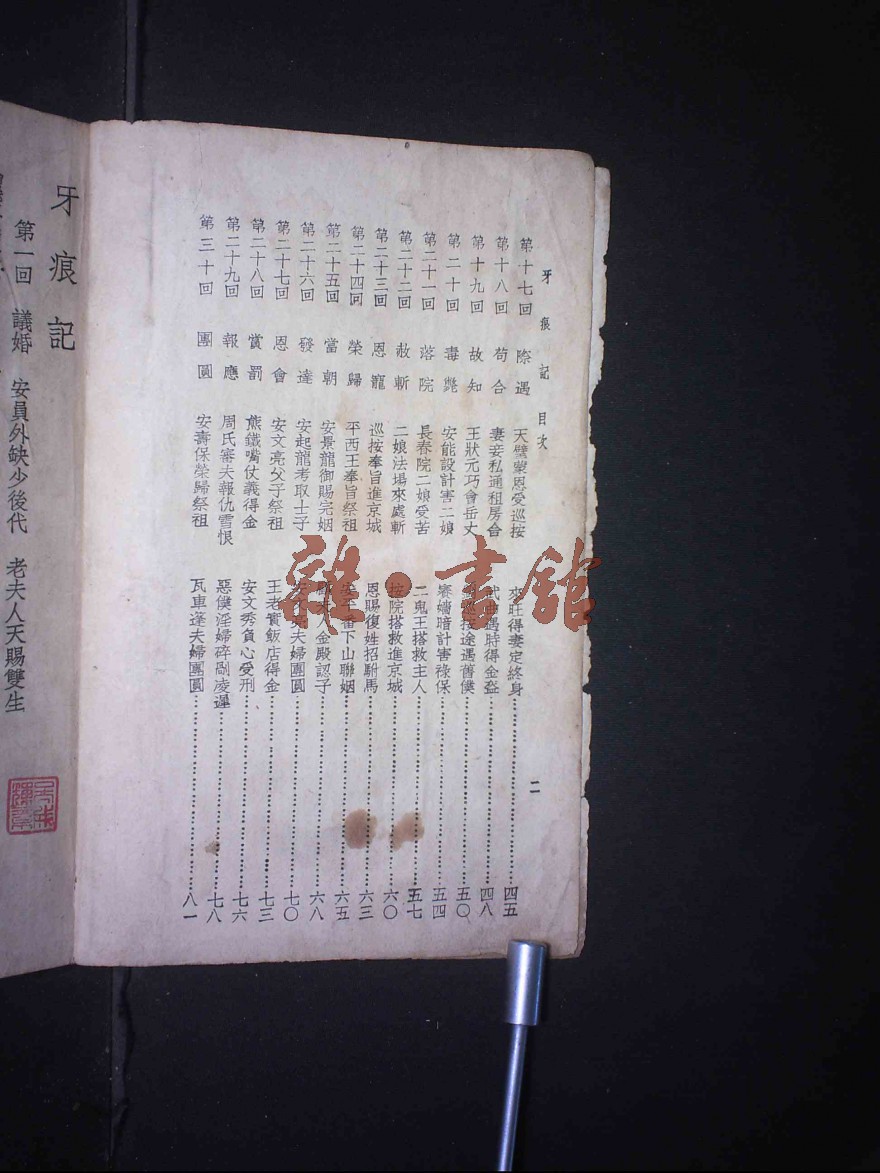 牙痕記 目次 二
第十七回 際遇 天譬蒙恩愛巡按 來旺得妻定終身 四五
第十八回 苟合 妻妾私通租房合 武曲遇時得金盔 四八
第十九回 故知 王狀元巧會岳丈 途遇舊僕 五〇
第二十回 毒斃 安能設計害二娘 賽嬙暗計害祿保 五四
第二十一回 落院 長春院二娘受苦 二鬼王搭救主人 五七
第二十二回 赦斬 二娘法場來處斬 按院搭救進京城 六〇
第二十三回 恩寵 巡按奉旨進京城 恩賜復姓招駙馬 六三
第二十四回 榮歸 平西王奉旨祭祖 下山聯姻 六五
第二十五回 當朝 安景龍御賜完姻 金殿認子 六八
第二十六回 發達 安起龍考取士子 夫婦團圓 七〇
第二十七回 恩會 安文亮父子祭祖 王老實飯店得金 七三
第二十八回 賞罰 熊鐵嘴仗義得金 安文秀負心受刑 七六
第二十九回 報應 周氏審夫報仇雪恨 惡僕淫婦碎剮凌遲 七八
第三十回 團圓 安壽保榮歸祭祖 瓦車蓬夫婦團圓 八一
牙痕記
第一回 議婚 安員外缺少後代 老夫人天賜雙生
雜·書館